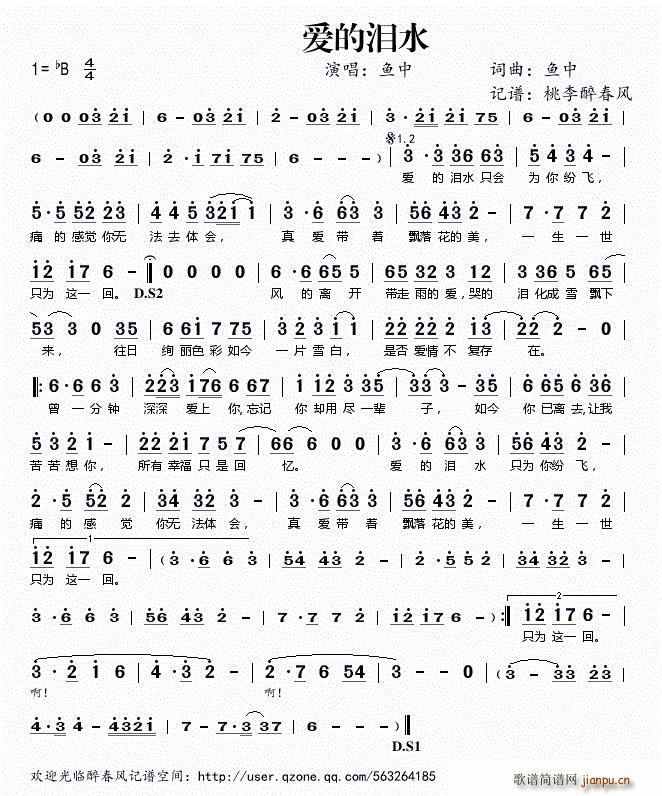 爱的泪水
1=♭B 4/4 演唱：鱼中 词曲：鱼中
记谱：桃李醉春风
(0 0 03 21 | 6 - 03 21 | 2 - 03 21 | 3 · 21 21 75 | 6 - 03 21 |
𝄋1.2
6 - 03 21 | 2 · 1 71 75 | 6 - - -) | 3 · 3 36 63 | 5 4 3 4 - |
爱 的 泪水 只会 为 你 纷 飞，
5 · 5 52 23 | 4 4 5 321 1 | 3 · 6 63 3 | 56 43 2 - | 7 · 7 7 2 |
痛 的 感觉 你无 法 去 体 会， 真 爱 带 着 飘落 花的 美， 一 生 一 世
12 17 6 - | 0 0 0 0 | 6 · 6 65 5 | 65 32 3 12 | 3 36 5 55 |
只为 这一 回。 D.S2 风 的 离 开 带走 雨的 爱，哭的 泪 化成 雪 飘下
53 3 0 35 | 6 61 7 75 | 3 2 3 1 1 | 22 22 2 13 | 22 2 - 0 |
来， 往日 绚 丽色 彩 如今 一 片 雪 白， 是否 爱情 不 复存 在。
6 · 6 6 3 | 223 176 6 67 | 1 12 3 35 | 33 3 - 35 | 6 65 6 36 |
曾 一 分 钟 深深 爱上 你，忘记 你 却用 尽 一辈 子， 如今 你 已离 去，让我
5 3 2 1 - | 22 21 7 57 | 66 6 0 0 | 3 · 6 63 3 | 56 43 2 - |
苦 苦 想 你， 所有 幸福 只 是回 忆。 爱 的 泪 水 只为 你纷 飞，
2 · 5 52 2 | 34 32 3 - | 3 · 6 63 3 | 56 43 2 - | 7 · 7 7 2 |
痛 的 感 觉 你无 法体 会， 真 爱 带 着 飘落 花的 美， 一 生 一 世
1
12 17 6 - | (3 · 6 6 3 | 54 43 2 - | 2 · 5 5 2 | 34 32 3 - |
只为 这一 回。
2
3 · 6 6 3 | 56 43 2 - | 7 · 7 7 2 | 12 17 6 -) :‖ 12 17 6 - |
只为 这一 回。
3 · 2 1 6 | 4 · 3 2 - | 2 · 7 6 54 | 3 - - 0 | (3 - 33 23 |
啊！ 啊！
4 · 3 4 - | 4321 | 7 - 7 · 3 37 | 6 - - -) ‖
D.S1
欢迎光临醉春风记谱空间：http://user.qzone.qq.com/563264185
歌谱简谱网
jianpu.cn